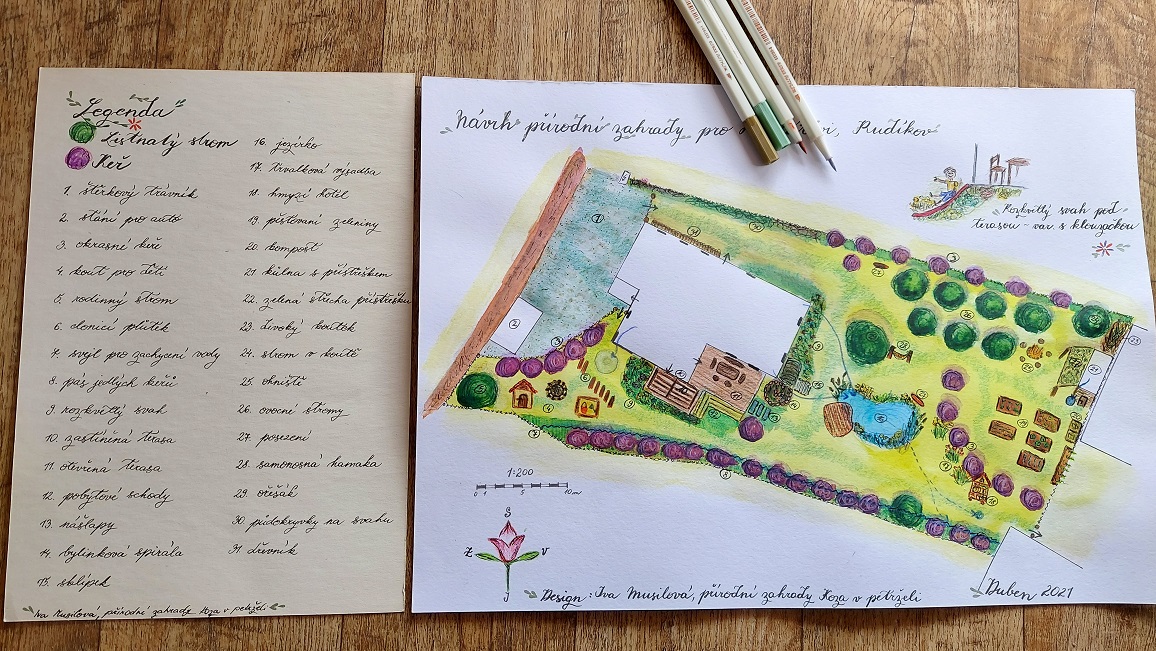 Legenda
Listnatý strom
Keř
1. štěrkový trávník
2. stání pro auto
3. okrasné keře
4. kout pro děti
5. rodinný strom
6. clonící plůtek
7. svejl pro zachycení vody
8. pás jedlých keřů
9. rozkvétlý svah
10. zastíněná terasa
11. otevřená terasa
12. pobytové schody
13. nášlapy
14. bylinková spirála
15. sklípek
16. jezírko
17. trvalková výsadba
18. hmyzí hotel
19. pěstování zeleniny
20. kompost
21. kůlna s přístřeškem
22. zelená střecha přístřešku
23. divoký koutek
24. strom v koutě
25. ohniště
26. ovocné stromy
27. posezení
28. samonosná hamaka
29. ořešák
30. půdokryvky na svahu
31. dřevník
Iva Musilová, přírodní zahrady Koza v petrželi
Návrh přírodní zahrady pro Rudíkov
Rozkvétlý svah pod
terasou - var. s klouzačkou
1:200
0 1 5 10 m
S
Z V
J
Design: Iva Musilová, přírodní zahrady Koza v petrželi
Duben 2021